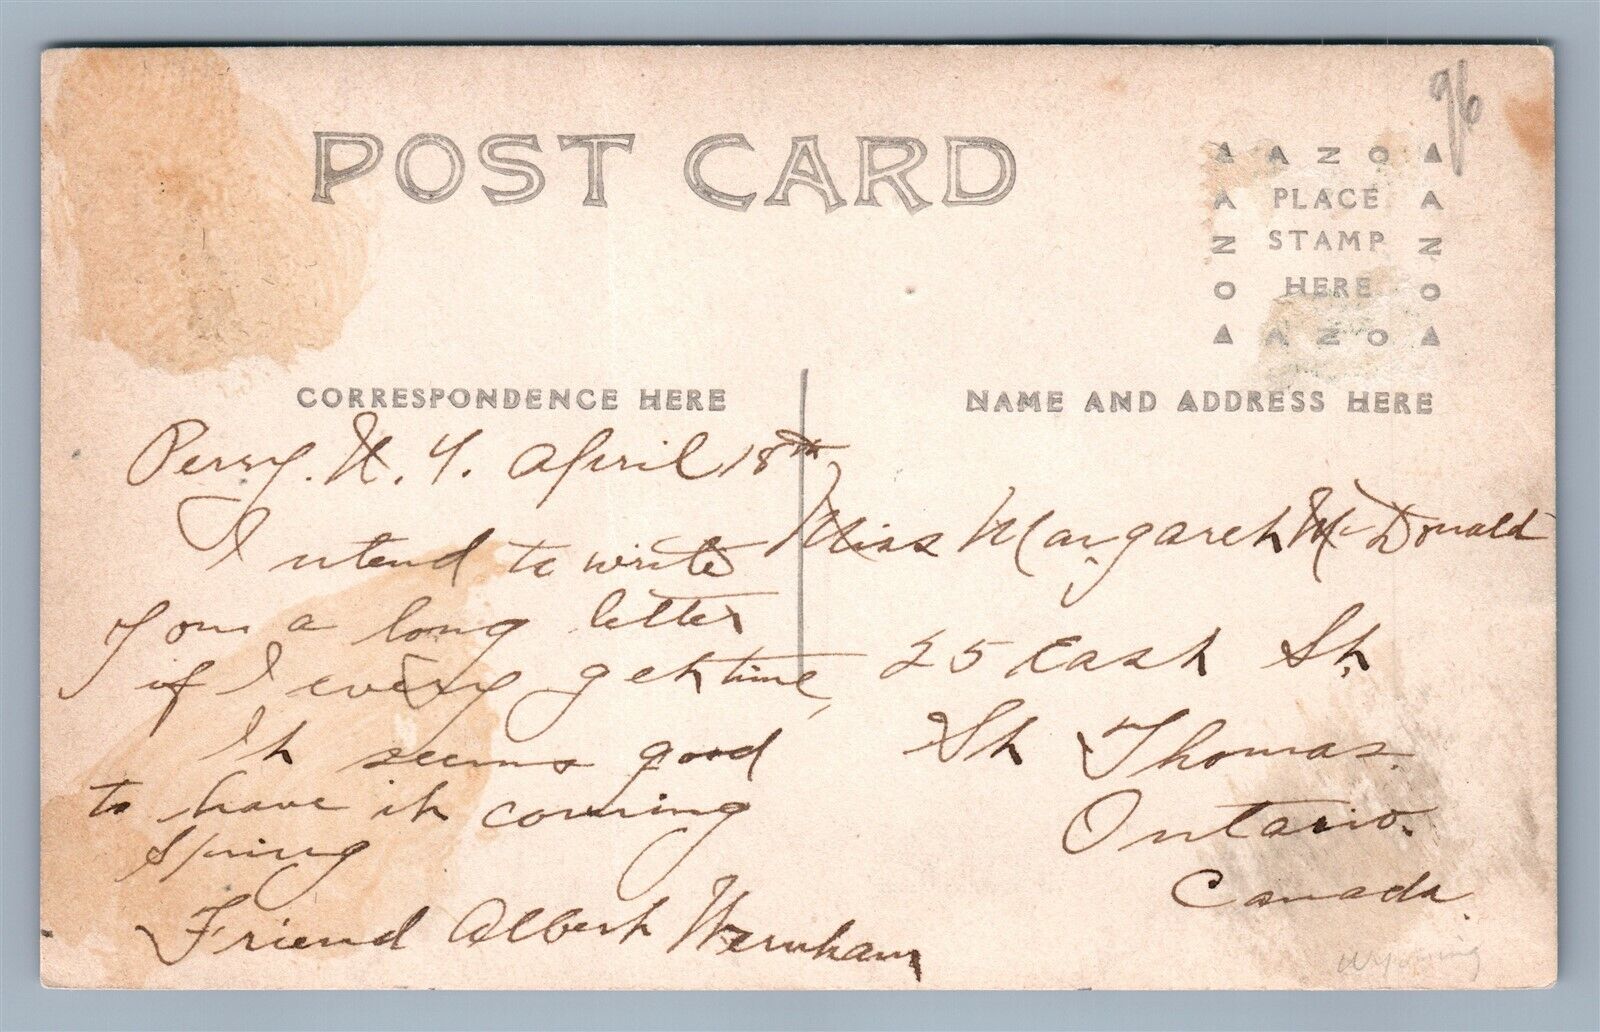 96
POST CARD
AZO
PLACE
STAMP
HERE
AZO
CORRESPONDENCE HERE
NAME AND ADDRESS HERE
Perry. N. Y. April 18th
I ntend to write
You a long letter
if I every get time,
It seems good
to have it coming
Spring
Friend Albert Wernham
Miss Margaret McDonald
25 East St.
St Thomas.
Ontario.
Canada.
Wyoming